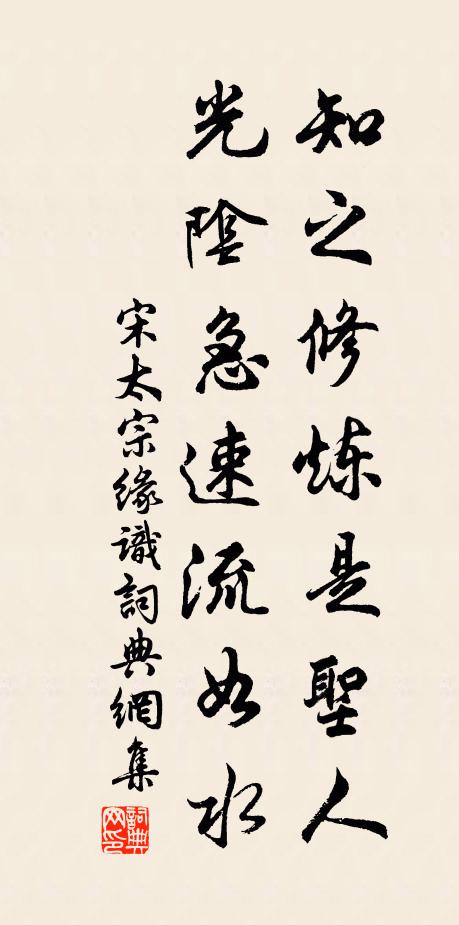 知之修炼是聖人
光陰急速流如水
宋太宗緣識詞典網集
詞典网印